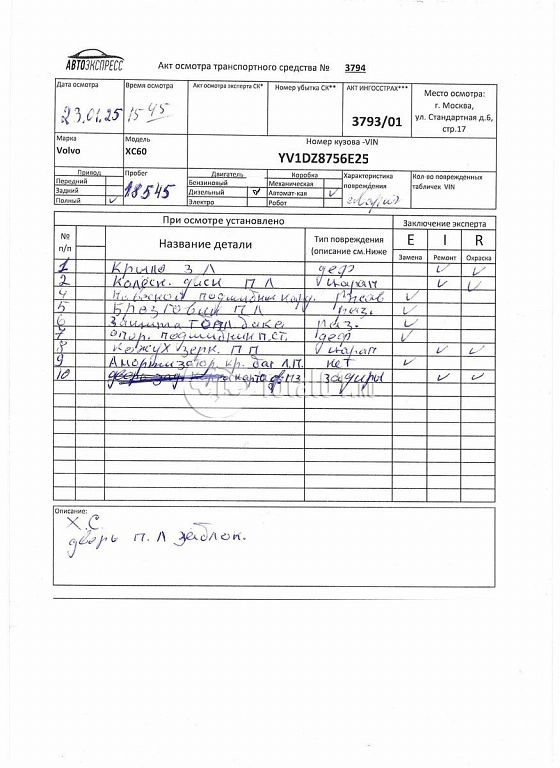 АВТОЭКСПРЕСС
Акт осмотра транспортного средства № 3794
Дата осмотра Время осмотра Акт осмотра эксперта СК* Номер убытка СК** АКТ ИНГОССТРАХ*** Место осмотра:
г. Москва,
ул. Стандартная д.6,
стр.17
23.01.25 15 45 3793/01
Марка Модель Номер кузова -VIN
Volvo XC60 YV1DZ8756E25
Привод Пробег Двигатель Коробка Характеристика повреждения Кол-во поврежденных табличек VIN
Передний Бензиновый Механическая
Задний 18545 Дизельный V Автомат-кая V
Полный V Электро Робот
При осмотре установлено Заключение эксперта
№ п/п Название детали Тип повреждения (описание см.Ниже E I R
Замена Ремонт Окраска
1 Крыло З Л деф V V
2 Колесн. диски П Л царап V V
4 V
5 Брызговик П Л раз. V
6 Защита топл бака раз. V
7 Опор. подшибник П.СТ. деф V
8 Кожух зерк. П П царап V V
9 Амортизатор кр. баг Л.П. нет V
10 задиры V V
Описание:
Х.С.
дверь П. Л заблок.